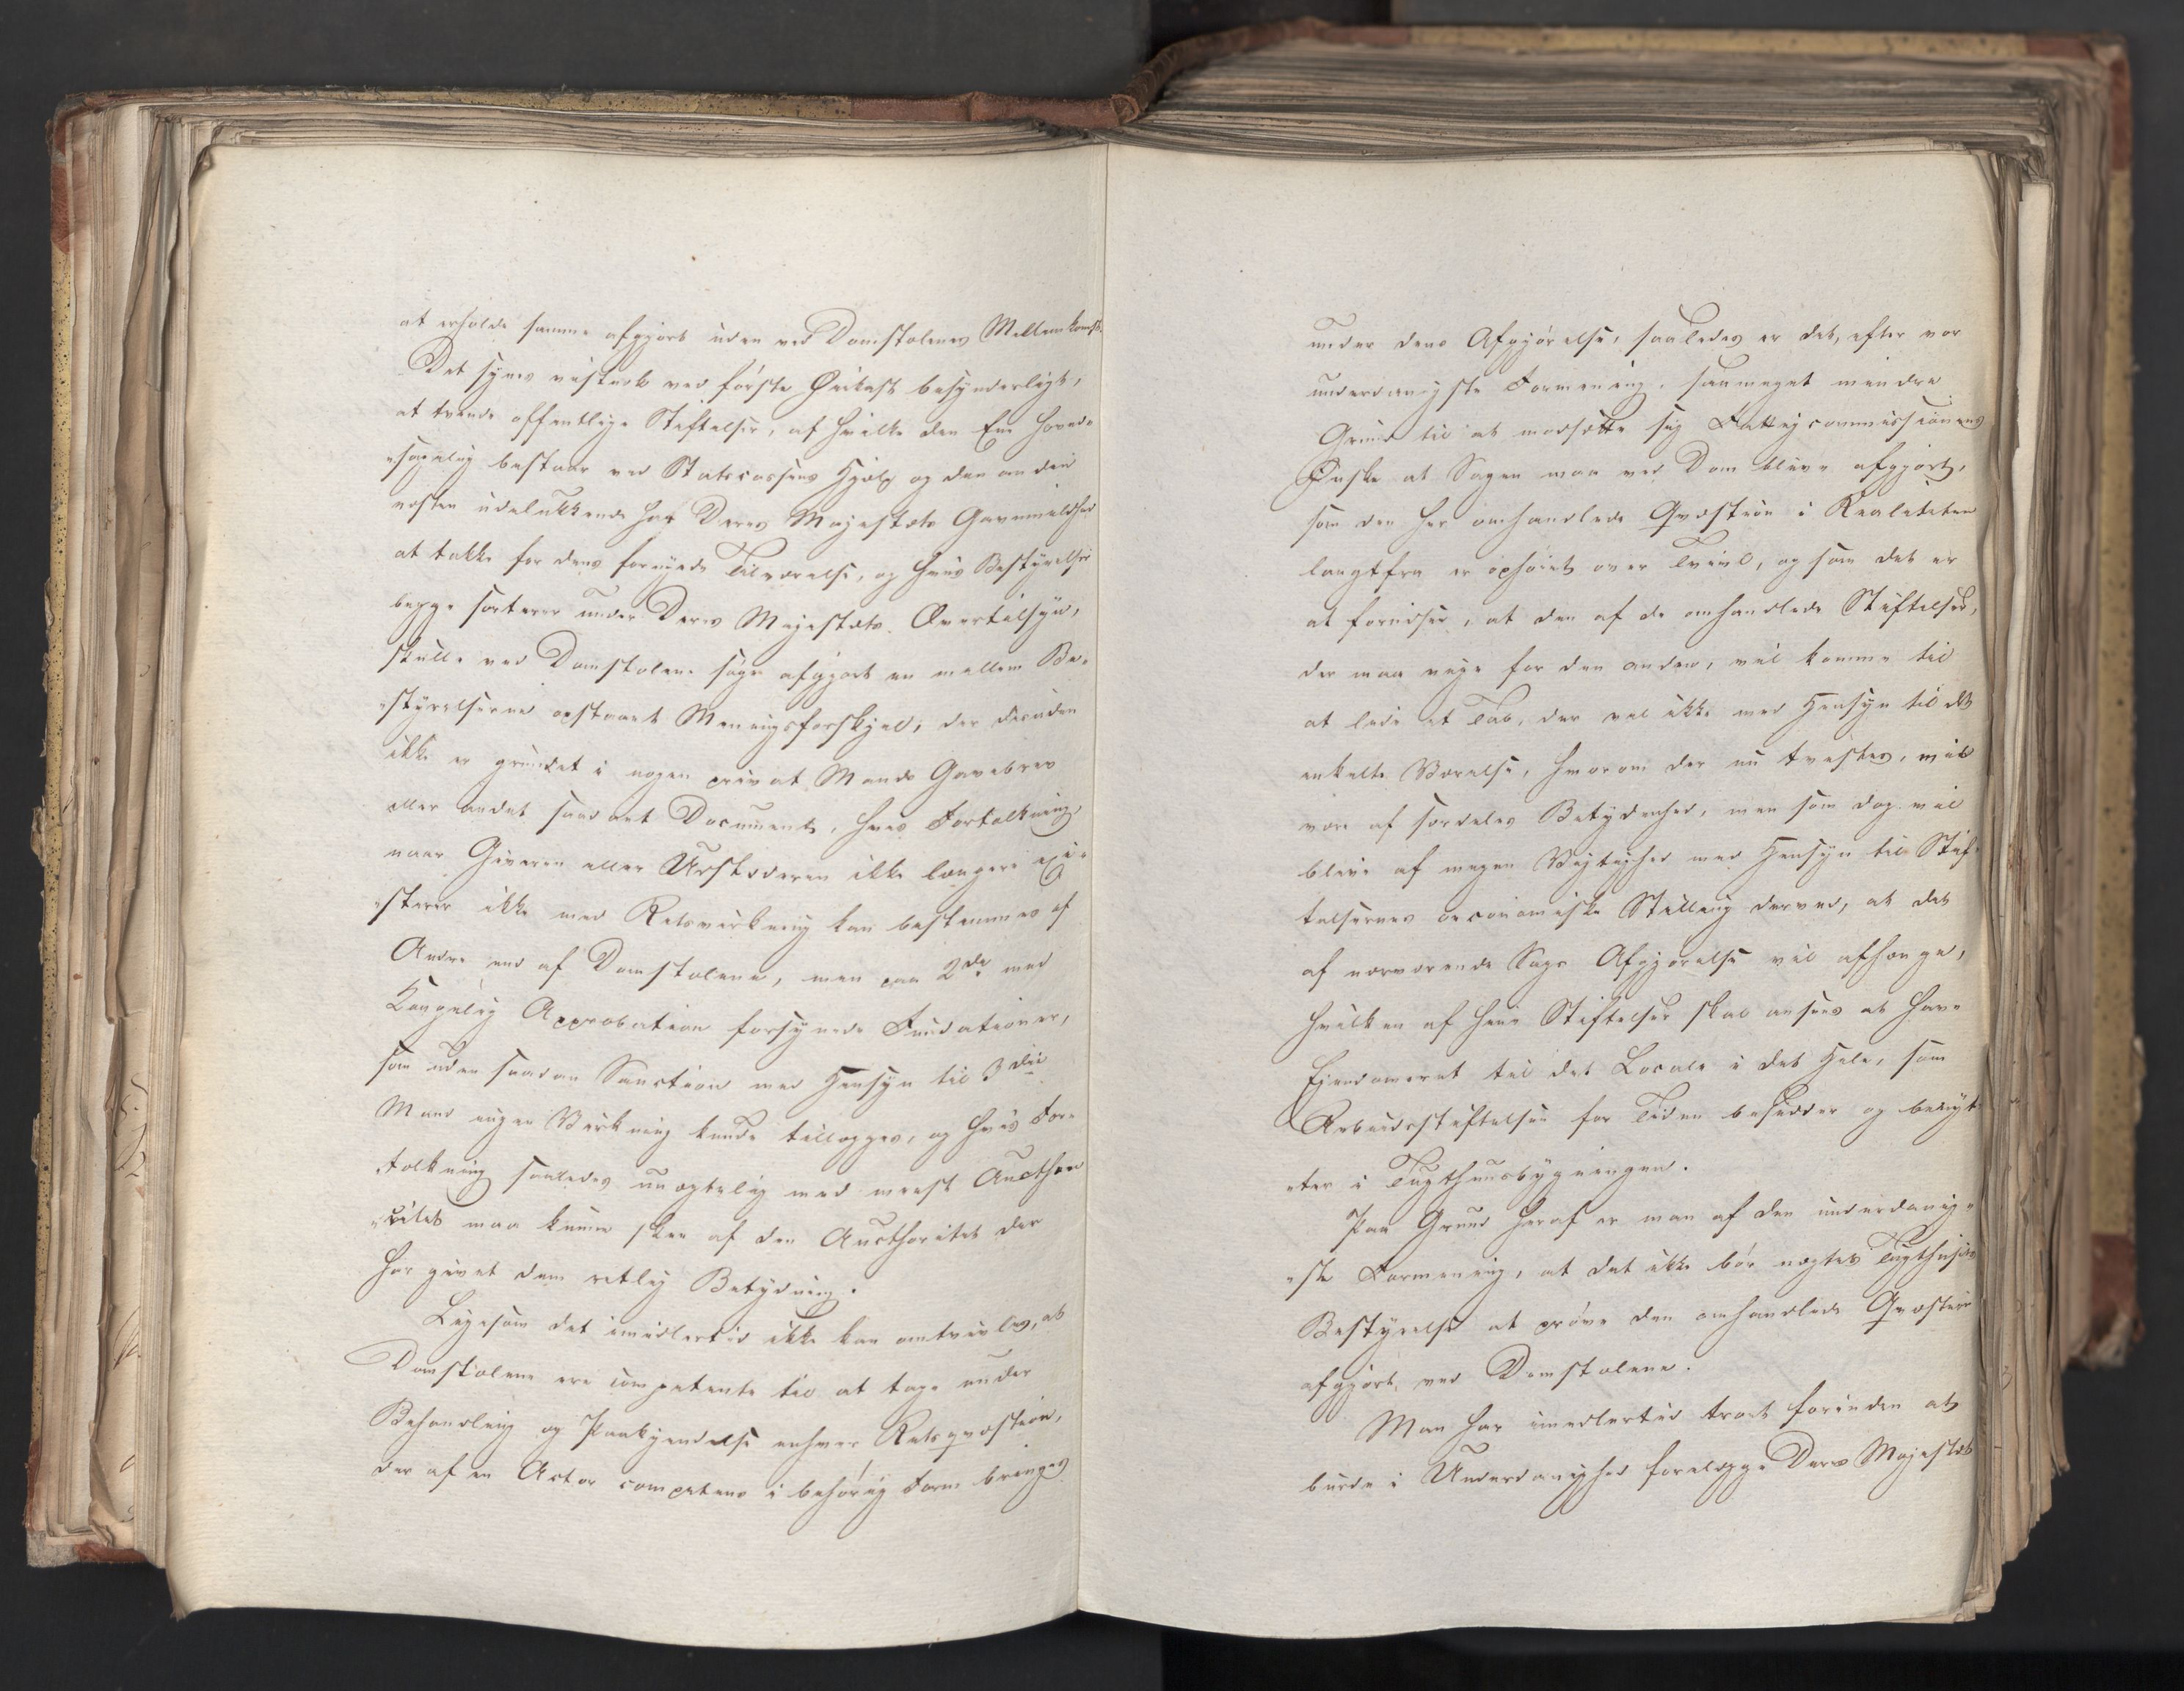 at erholde samme afgjort uden ved Domstolenes Mellemkomst.
Det synes vistnok ved første Øiekast besynderligt,
at tvende offentlige Stiftelser, af hvilke den Ene hoved-
"sagelig bestaar ved Statscassens Hjelp og den anden
næsten udelukkende har Deres Majestæts Gavmildhed
at takke for dens fornyede Tilværelse, og hvis Bestyrelser
begge sorterer under Deres Majestæts Overtilsyn,
skulle ved Domstolene søge afgjort en mellem Be-
"styrelserne opstaaet Meningsforskjel, der desuden
ikke er grundet i nogen privat Mands Gavebrev
eller andet saadant Document, hvis Fortolkning,
naar Giveren eller Udstederen ikke længere exi-
"sterer ikke med Retsvirkning kan bestemmes af
Andre end af Domstolene, men paa 2de med
Kongelig Approbation forsynede Fundationer,
som uden saadan Sanction med Hensyn til 3die
Mand ingen Virkning kunde tillægges, og hvis For-
tolkning saaledes unægtelig med meest Autho-
"ritet maa kunne skee af den Aucthoritet der
har givet dem retlig Betydning.
Ligesom det imidlertid ikke kan omtvivles, at
Domstolene ere competente til at tage under
Behandling og Paakjendelse enhver Retsqvæstion,
der af en Actor competens i behørig Form bringes
under dens Afgjørelse, saaledes er det, efter vor
underdanigste Formening, saameget mindre
Grund til at modsætte sig Fattigcommissionens
Ønske at Sagen maa ved Dom blive afgjort,
som den her omhandlede Qvæstion i Realiteten
langtfra er ophøiet over Tvivl, og som det er
at forudsee, at den af de omhandlede Stiftelser,
der maa vige for den anden, vil komme til
at lide et Tab, der vel ikke med Hensyn til det
enkelte Værelse, hvorom der nu tvistes, vil
være af særdeles Betydenhed, men som dog vil
blive af megen Vigtighed med Hensyn til Stif-
telsernes oeconomiske Stilling derved, at det
af nærværende Sags Afgjørelse vil afhænge,
hvilken af hine Stiftelser skal ansees at have
Ejendomsret til det Locale i det Hele, som
Arbeidsstiftelsen for Tiden besidder og benyt
"ter i Tugthuusbygningen.
Paa Grund heraf er man af den underdanig-
"ste Formening, at det ikke bør nægtes Tugthusets
Bestyrelse at prøve den omhandlede Qvæstion
afgjort ved Domstolene.
Man har imidlertid troet forinden at
burde i Underdanighed forelægge Deres Majestæt